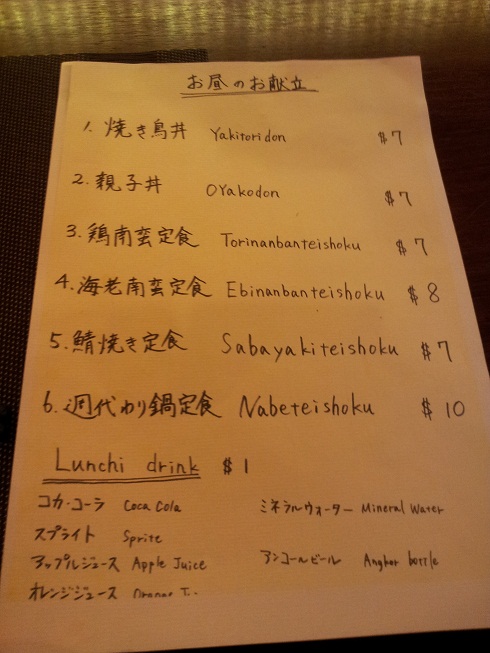 お昼のお献立
1. 焼き鳥丼 Yakitoridon $7
2. 親子丼 Oyakodon $7
3. 鶏南蛮定食 Torinanbanteishoku $7
4. 海老南蛮定食 Ebinanbanteishoku $8
5. 鯖焼き定食 Sabayakiteishoku $7
6. 週代わり鍋定食 Nabeteishoku $10
Lunchi drink $1
コカ・コーラ Coca Cola ミネラルウォーター Mineral Water
スプライト Sprite
アップルジュース Apple Juice アンコールビール Angkor bottle
オレンジジュース